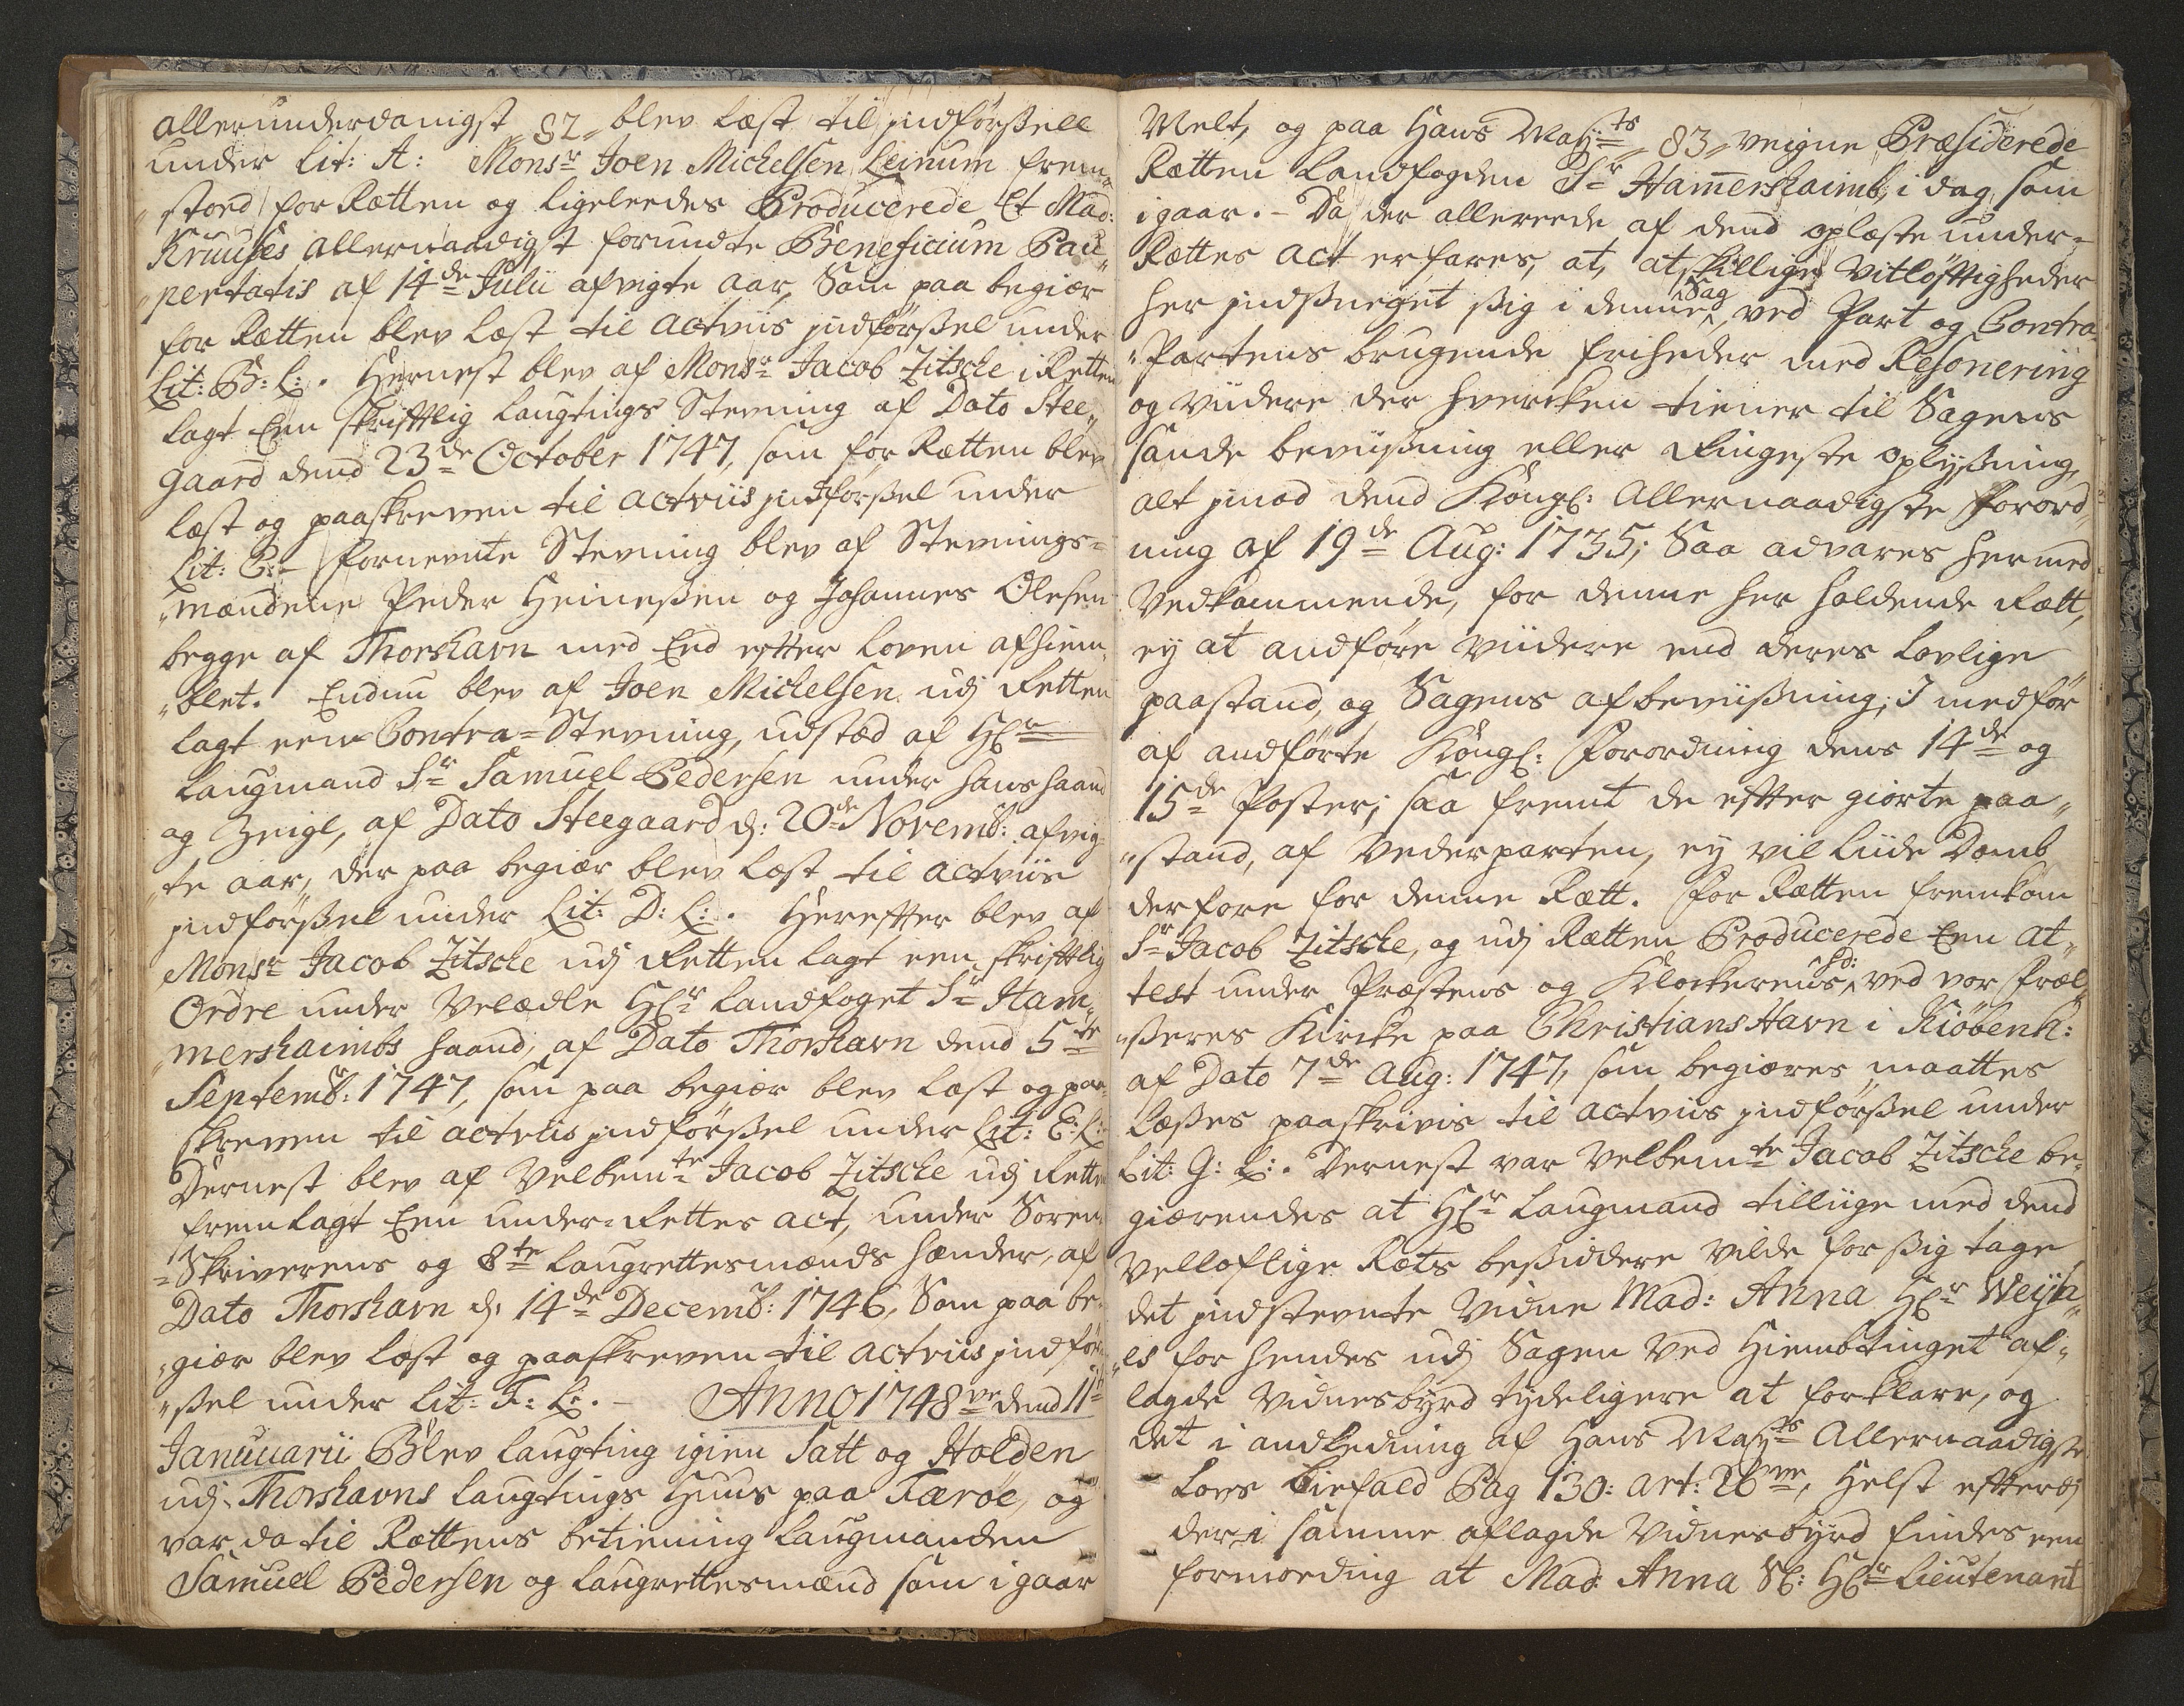 allerunderdanigst „82„ blev læst til indførßell
under Lit: A: Monsr Joen Michelsen Leinum frem„
„stoed for Rætten og ligeleedes Producerede Et Mad:
Kruuses allernaadigst forundte Beneficium Pau„
„pertatis af 14de Julii afvigte aar, Som paa begiær
for Rætten blev læst til actviis indførßel under
Lit: B: L:. Hernest blev af Monsr Jacob Zitscke i Retten
lagt Een skrifftlig Laugtings Stevning af Dato Stee„
gaard dend 23de October 1747, som for Rætten blev
læst og paaskreven til actviis indførßel under
Lit: C:- fornevnte Stevning blev af Stevnings=
„mændene Peder Heineßen og Johannes Olesen
begge af Thorshavn med Eed efter Loven afhiem„
„blet. Endnu blev af Joen Michelsen udj Retten
lagt een Contra=Stevning, udstæd af Hr
Laugmand Sr Samuel Pedersen under hans haand
og Zeigl, af Dato Steegaard d: 20de Novemb: afvig„
„te aar, der paa begiær blev læst til actviis
indførßel under Lit: D: L:. Herefter blev af
Monsr Jacob Zitscke udj Retten lagt een skrifftlig
Ordre under Velædle Hr Landfoget Sr Ham„
„mershaimbs haand, af Dato Thorshavn dend 5te
Septemb: 1747, som paa begiær blev læst og paa„
skreven til actviis indførßel under Lit: E: L:
Dernest blev af Velbemte Jacob Zitscke udj Retten
fremlagt Een under=Rettes act, under Soren„
=Skriverens og 8te Laugrettesmænds hænder, af
Dato Thorshavn d: 14de Decemb: 1746, Som paa be„
„giær blev læst og paaskreven til actviis indfør„
„ßel under Lit: F: L:. - Anno 1748ve dend 11te
Januuarii Blev Laugting igien Satt og Holden
udj Thorshavns Laugtings Huus paa Færöe, og
var da til Rættens betiening Laugmanden
Samuel Pedersen og Laugrettesmænd som igaar
Melt, og paa Hans Mayts „83„ veigne Præsiderede
Rætten Landfogden Sr Hamershaimb, i dag, som
igaar. - Da der allereede af dend oplæste under=
Rættes act erfares, at, atskillige Vitløftigheder
her indsneeget ßig i denne Sag, ved Part og Contra„
„Partens brugende friheder med Resonering
og viidere der hvercken tiener til Sagens
sande beviißning eller Ringeste oplyßning,
alt imod dend Kongl: Allernaadigste forord„
ning af 19de Aug: 1735; Saa advares hermed
Vedkommende, for denne her holdende Rætt,
ey at andføre viidere end deres Lovlige
paastand, og Sagens afbeviißning, I medfør
af andførte Kongl: forordning dens 14de og
15de Poster; saa fremt de efter giorte paa„
„stand, af Vederparten, ey vil liide Domb
derfore for denne Rætt. For Rætten fremkom
Sr Jacob Zitscke, og udj Rætten Producerede Een at„
test under Præstens og Klockerens hd: ved vor frel„
„ßeres Kircke paa ChristiansHavn i Kiøbenh:
af Dato 7de Aug: 1747, som begiæres maattes
læßes paaskrivis til actviis indførßel under
Lit: G: L:. Dernest var Velbemte Jacob Zitscke be„
giærendes at Hr Laugmand tilliige med dend
Vellovlige Rets beßiddere vilde for ßig tage
det indstevnte Vidne Mad: Anna Hr Weyh„
„es for hendes udj Sagen ved Hiembtinget af„
lagde Vidnesbyrd tydeligere at forklare, og
det i andledning af Hans Mayts Allernaadigste
Lovs biefald Pag 130: art: 26ve, Helst efterdj
der i samme aflagde Vidnesbyrd findes een
formoeding at Mad: Anna Sl: Hr Lieutenant